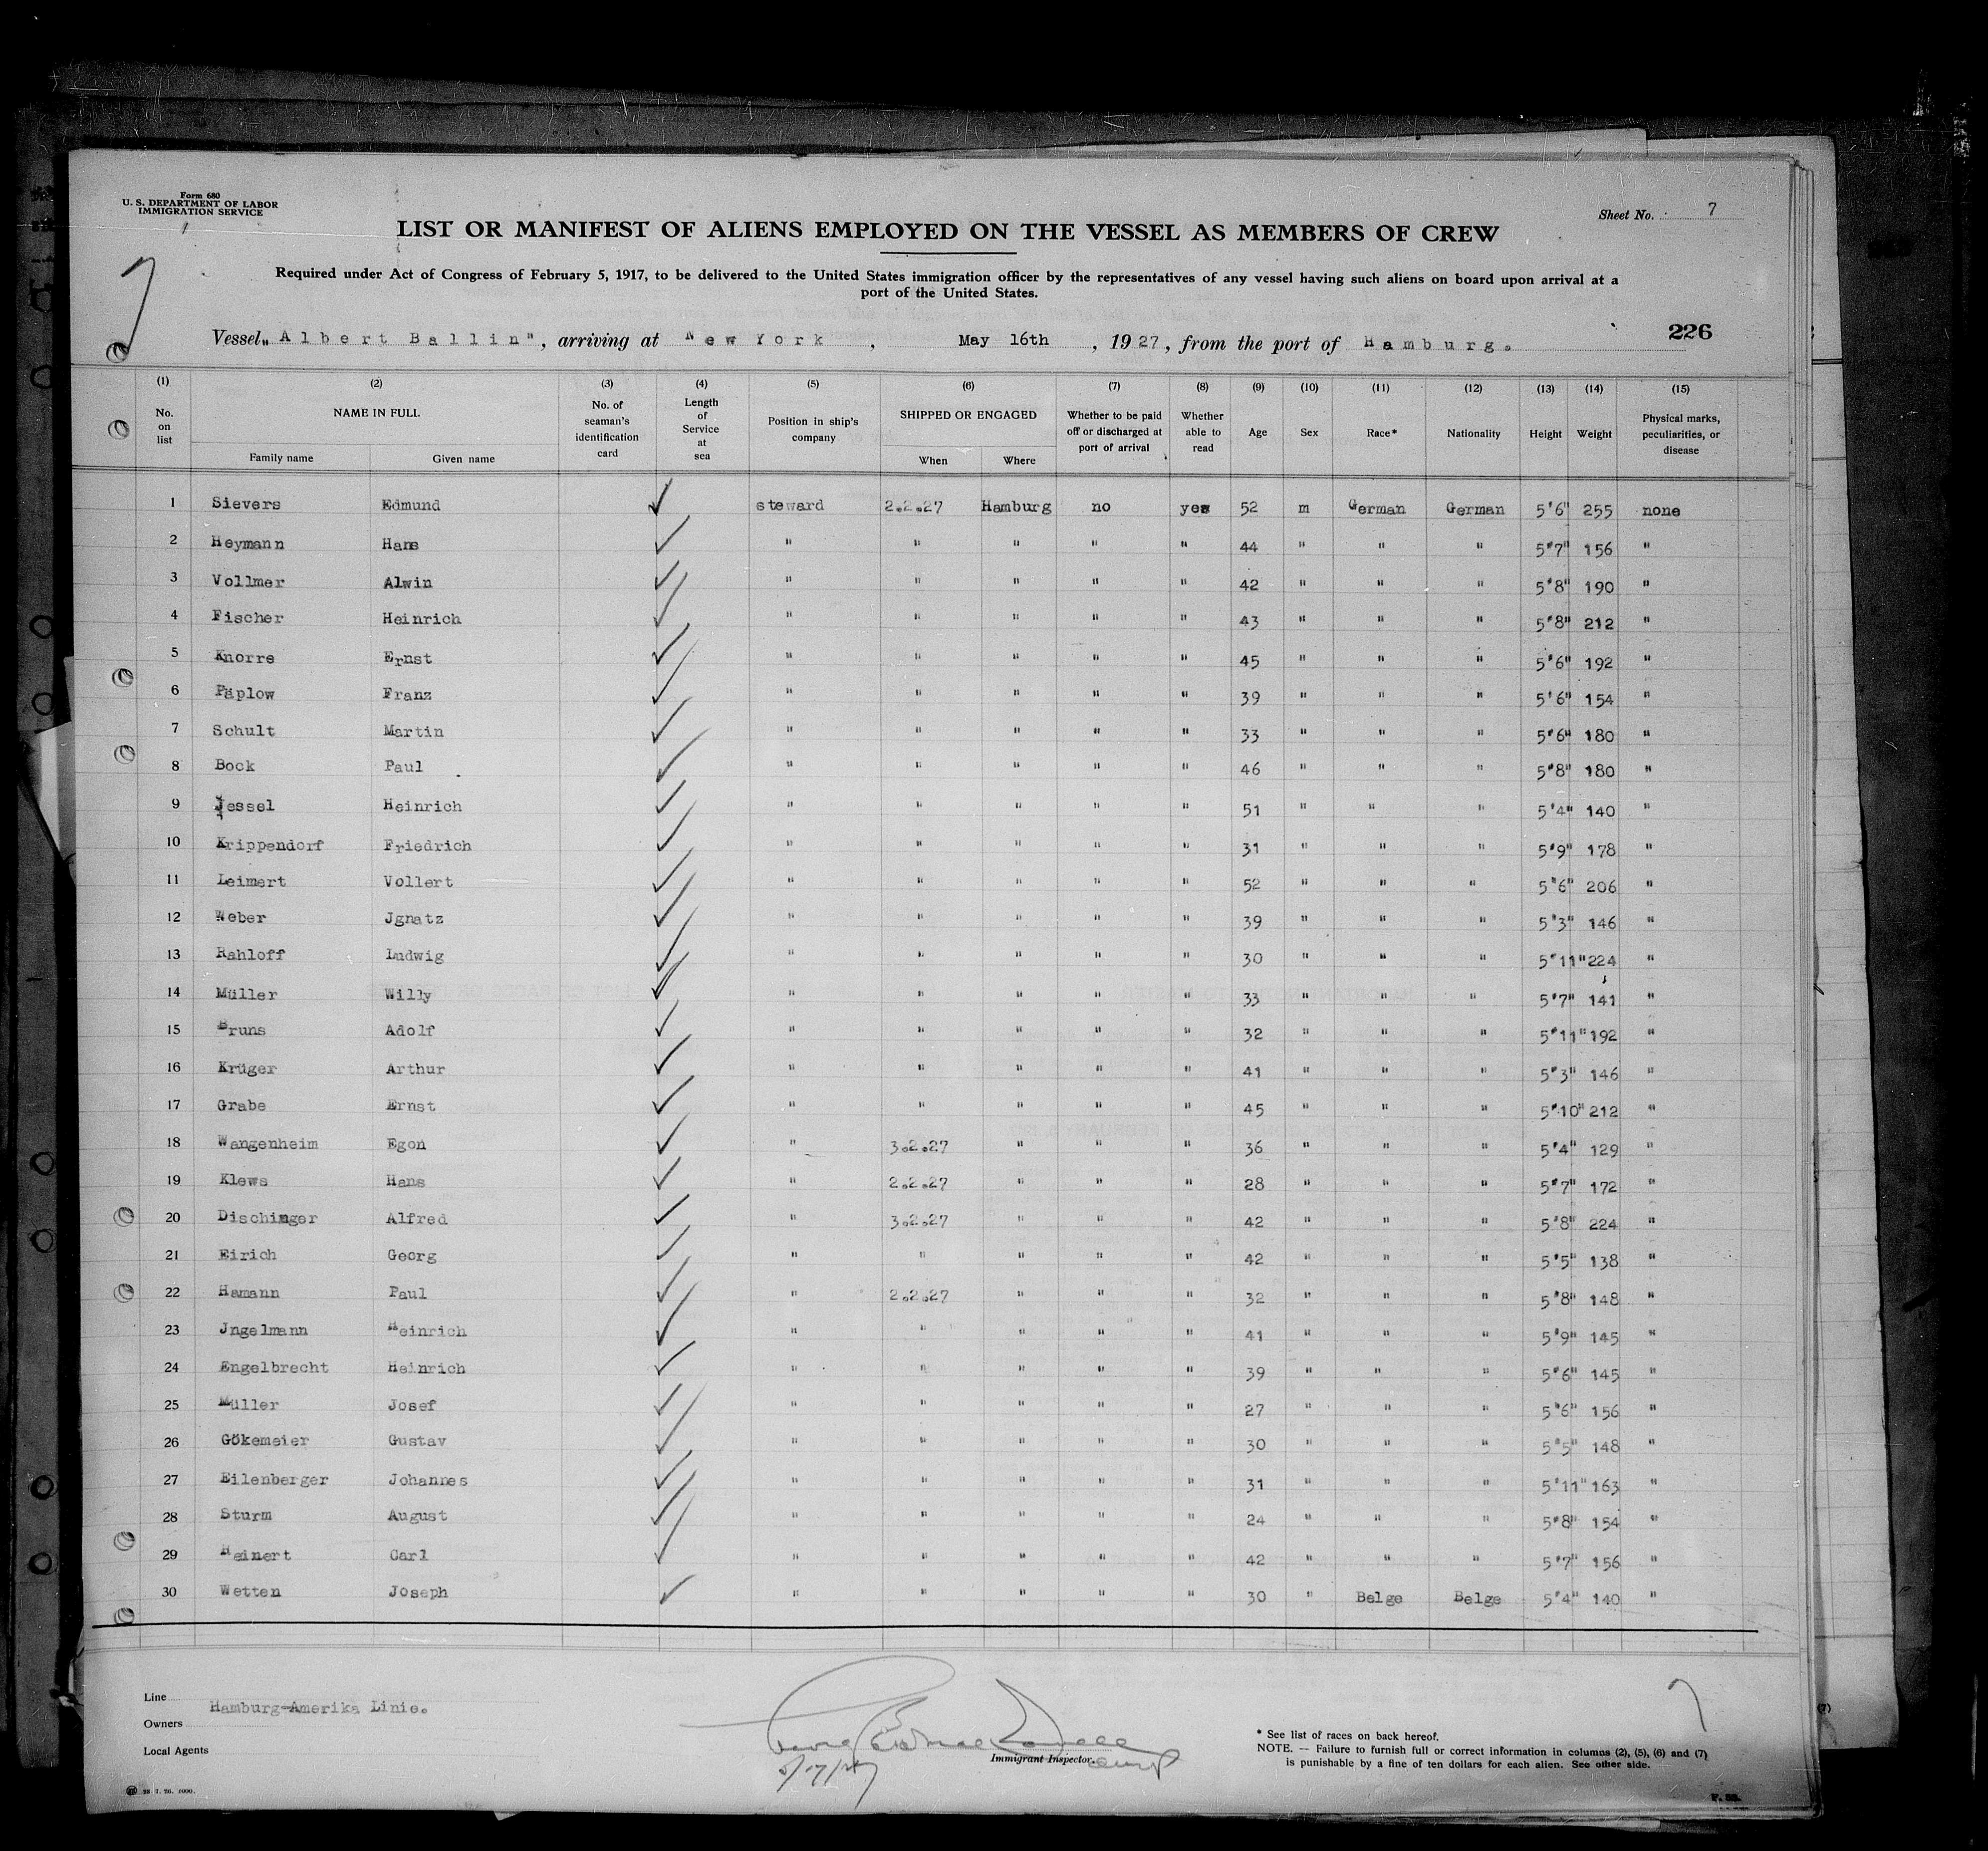 Form 680
U. S. DEPARTMENT OF LABOR
IMMIGRATION SERVICE
Sheet No. 7
LIST OR MANIFEST OF ALIENS EMPLOYED ON THE VESSEL AS MEMBERS OF CREW
Required under Act of Congress of February 5, 1917, to be delivered to the United States immigration officer by the representatives of any vessel having such aliens on board upon arrival at a
port of the United States.
7
Vessel „Albert Ballin", arriving at New York, May 16th, 1927, from the port of Hamburg. 226
(1) (2) (3) (4) (5) (6) (7) (8) (9) (10) (11) (12) (13) (14) (15)
No. on list NAME IN FULL Family name Given name No. of seaman's identification card Length of Service at sea Position in ship's company SHIPPED OR ENGAGED When Where Whether to be paid off or discharged at port of arrival Whether able to read Age Sex Race* Nationality Height Weight Physical marks, peculiarities, or disease
1 Sievers Edmund ✓ steward 2.2.27 Hamburg no yes 52 m German German 5'6" 255 none
2 Heymann Hans ✓ " " " " " 44 " " " 5'7" 156 "
3 Vollmer Alwin ✓ " " " " " 42 " " " 5'8" 190 "
4 Fischer Heinrich ✓ " " " " " 43 " " " 5'8" 212 "
5 Knorre Ernst ✓ " " " " " 45 " " " 5'6" 192 "
6 Päplow Franz ✓ " " " " " 39 " " " 5'6" 154 "
7 Schult Martin ✓ " " " " " 33 " " " 5'6" 180 "
8 Bock Paul ✓ " " " " " 46 " " " 5'8" 180 "
9 Jessel Heinrich ✓ " " " " " 51 " " " 5'4" 140 "
10 Krippendorf Friedrich ✓ " " " " " 31 " " " 5'9" 178 "
11 Leimert Vollert ✓ " " " " " 52 " " " 5'6" 206 "
12 Weber Jgnatz ✓ " " " " " 39 " " " 5'3" 146 "
13 Rahloff Ludwig ✓ " " " " " 30 " " " 5'11" 224 "
14 Müller Willy ✓ " " " " " 33 " " " 5'7" 141 "
15 Bruns Adolf ✓ " " " " " 32 " " " 5'11" 192 "
16 Krüger Arthur ✓ " " " " " 41 " " " 5'3" 146 "
17 Grabe Ernst ✓ " " " " " 45 " " " 5'10" 212 "
18 Wangenheim Egon ✓ " 3.2.27 " " " 36 " " " 5'4" 129 "
19 Klews Hans ✓ " 2.2.27 " " " 28 " " " 5'7" 172 "
20 Dischinger Alfred ✓ " 3.2.27 " " " 42 " " " 5'8" 224 "
21 Eirich Georg ✓ " " " " " 42 " " " 5'5" 138 "
22 Hamann Paul ✓ " 2.2.27 " " " 32 " " " 5'8" 148 "
23 Jngelmann Heinrich ✓ " " " " " 41 " " " 5'9" 145 "
24 Engelbrecht Heinrich ✓ " " " " " 39 " " " 5'6" 145 "
25 Müller Josef ✓ " " " " " 27 " " " 5'6" 156 "
26 Gökemeier Gustav ✓ " " " " " 30 " " " 5'5" 148 "
27 Eilenberger Johannes ✓ " " " " " 31 " " " 5'11" 163 "
28 Sturm August ✓ " " " " " 24 " " " 5'8" 154 "
29 Heinert Carl ✓ " " " " " 42 " " " 5'7" 156 "
30 Wetten Joseph ✓ " " " " " 30 " Belge Belge 5'4" 140 "
Line
Hamburg-Amerika Linie.
Owners
Local Agents
Immigrant Inspector.
5/17/27
7
* See list of races on back hereof.
NOTE. — Failure to furnish full or correct information in columns (2), (5), (6) and (7)
is punishable by a fine of ten dollars for each alien. See other side.